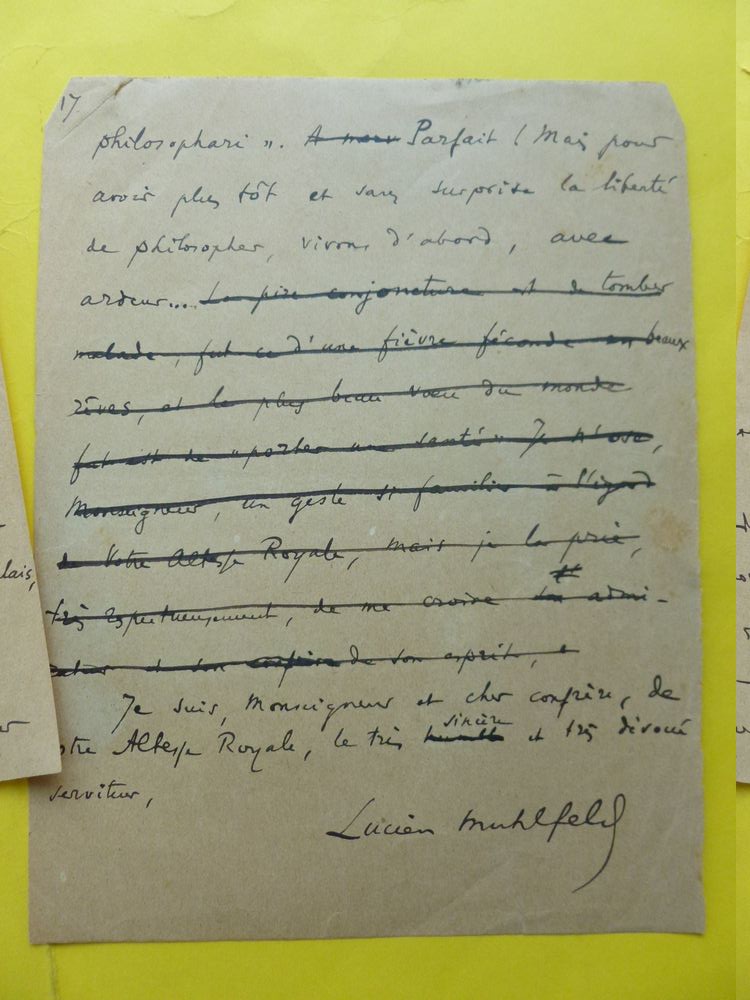 17
philosophari ". A mon Parfait ! Mais pour
avoir plus tôt et sans surprise la liberté
de philosopher, vivons d'abord, avec
ardeur... La pire conjoncture est de tomber
malade, fut ce d'une fièvre féconde en beaux
rêves, et le plus beau vœu du monde
fut est de "porter une santé" Je n'ose,
Monseigneur, un geste si familier à l'égard
de Votre Altesse Royale, mais je la prie,
très respectueusement, de me croire admi-
rateur et son confrère de son esprit, e
Je suis, Monseigneur et cher confrère, de
sincère
otre Altesse Royale, le très humble et très dévoué
serviteur,
Lucien Muhlfeld
lais,